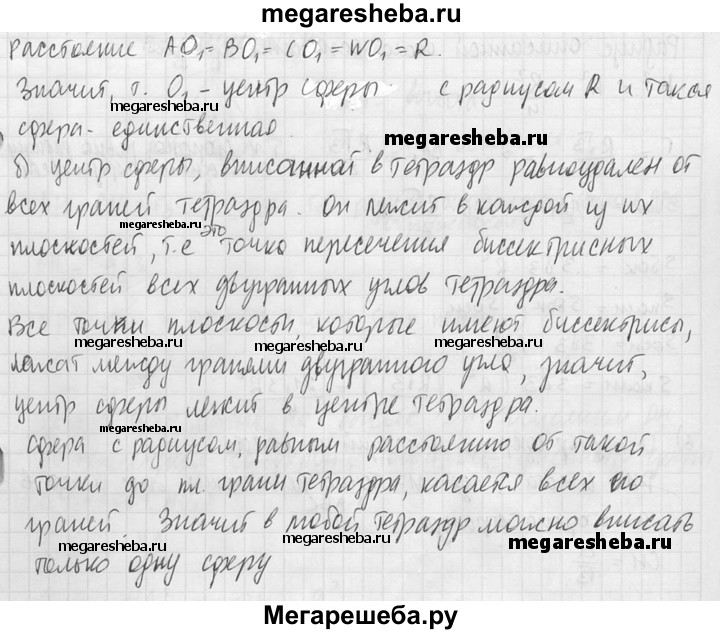 megaresheba.ru
расстояние AO₁=BO₁=CO₁=WO₁=R.
Значит, т. O₁ - центр сферы с радиусом R и такая
megaresheba.ru
сфера - единственная.
megaresheba.ru
б) центр сферы, вписанной в тетраэдр равноудален от
всех граней тетраэдра. Он лежит в каждой из их
megaresheba.ru
плоскостей, т.е это точка пересечения биссектрисных
плоскостей всех двугранных углов тетраэдра.
Все точки плоскости, которые имеют биссектрисы,
megaresheba.ru
лежат между гранями двугранного угла, значит,
центр сферы лежит в центре тетраэдра.
megaresheba.ru
сфера с радиусом, равным расстоянию от такой
точки до пл. грани тетраэдра, касается всех его
граней. Значит в любой тетраэдр можно вписать
megaresheba.ru megaresheba.ru megaresheba.ru
только одну сферу
Мегарешеба.ру